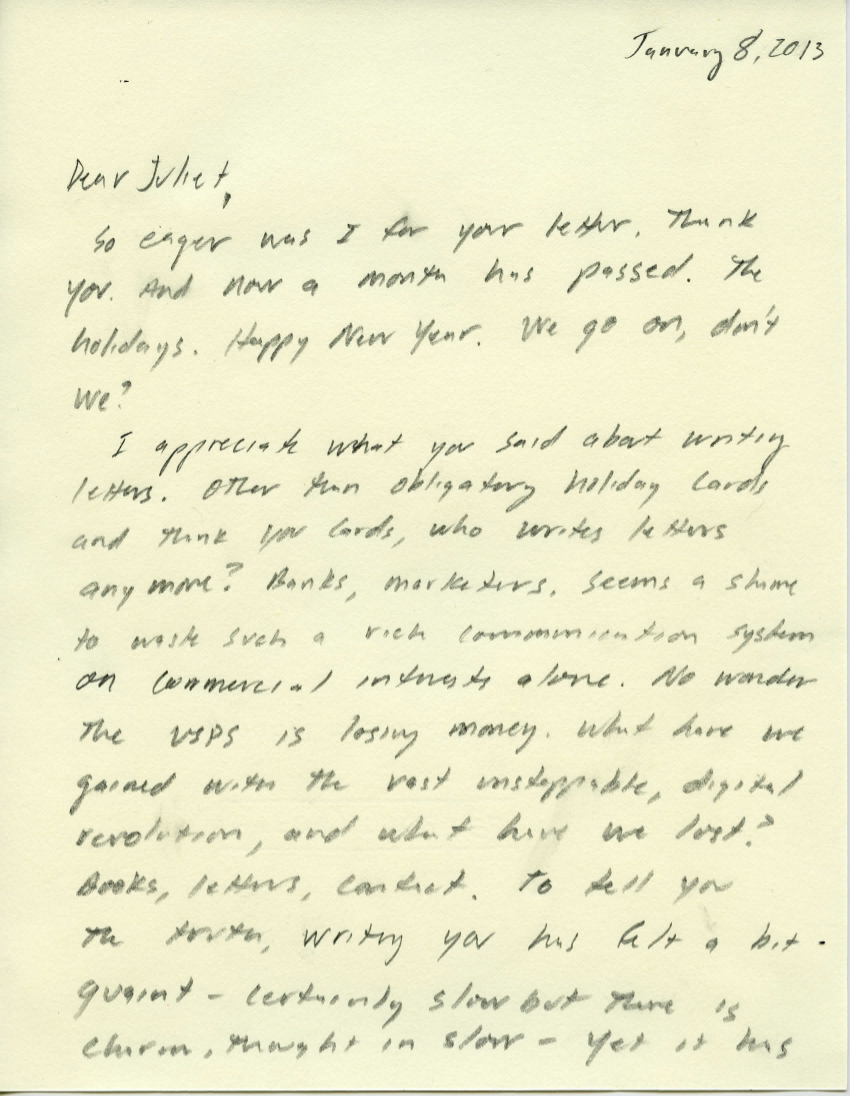 January 8, 2013
Dear Juliet,
So eager was I for your letter. Thank
you. And now a month has passed. The
holidays. Happy New Year. We go on, don't
we?
I appreciate what you said about writing
letters. Other than obligatory holiday cards
and thank you cards, who writes letters
any more? Banks, marketers. Seems a shame
to waste such a rich communication system
on commercial interests alone. No wonder
the USPS is losing money. What have we
gained with the vast unstoppable, digital
revolution, and what have we lost?
Books, letters, contact. To tell you
the truth, writing you has felt a bit
quaint - certainly slow but there is
charm, thought in slow - yet it has